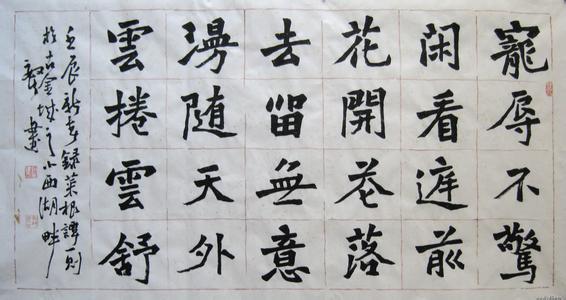 寵辱不驚
闲看庭前
花開花落
去留無意
漫随天外
雲捲雲舒
壬辰新春録菜根譚一則
於古金城之小西湖畔
書